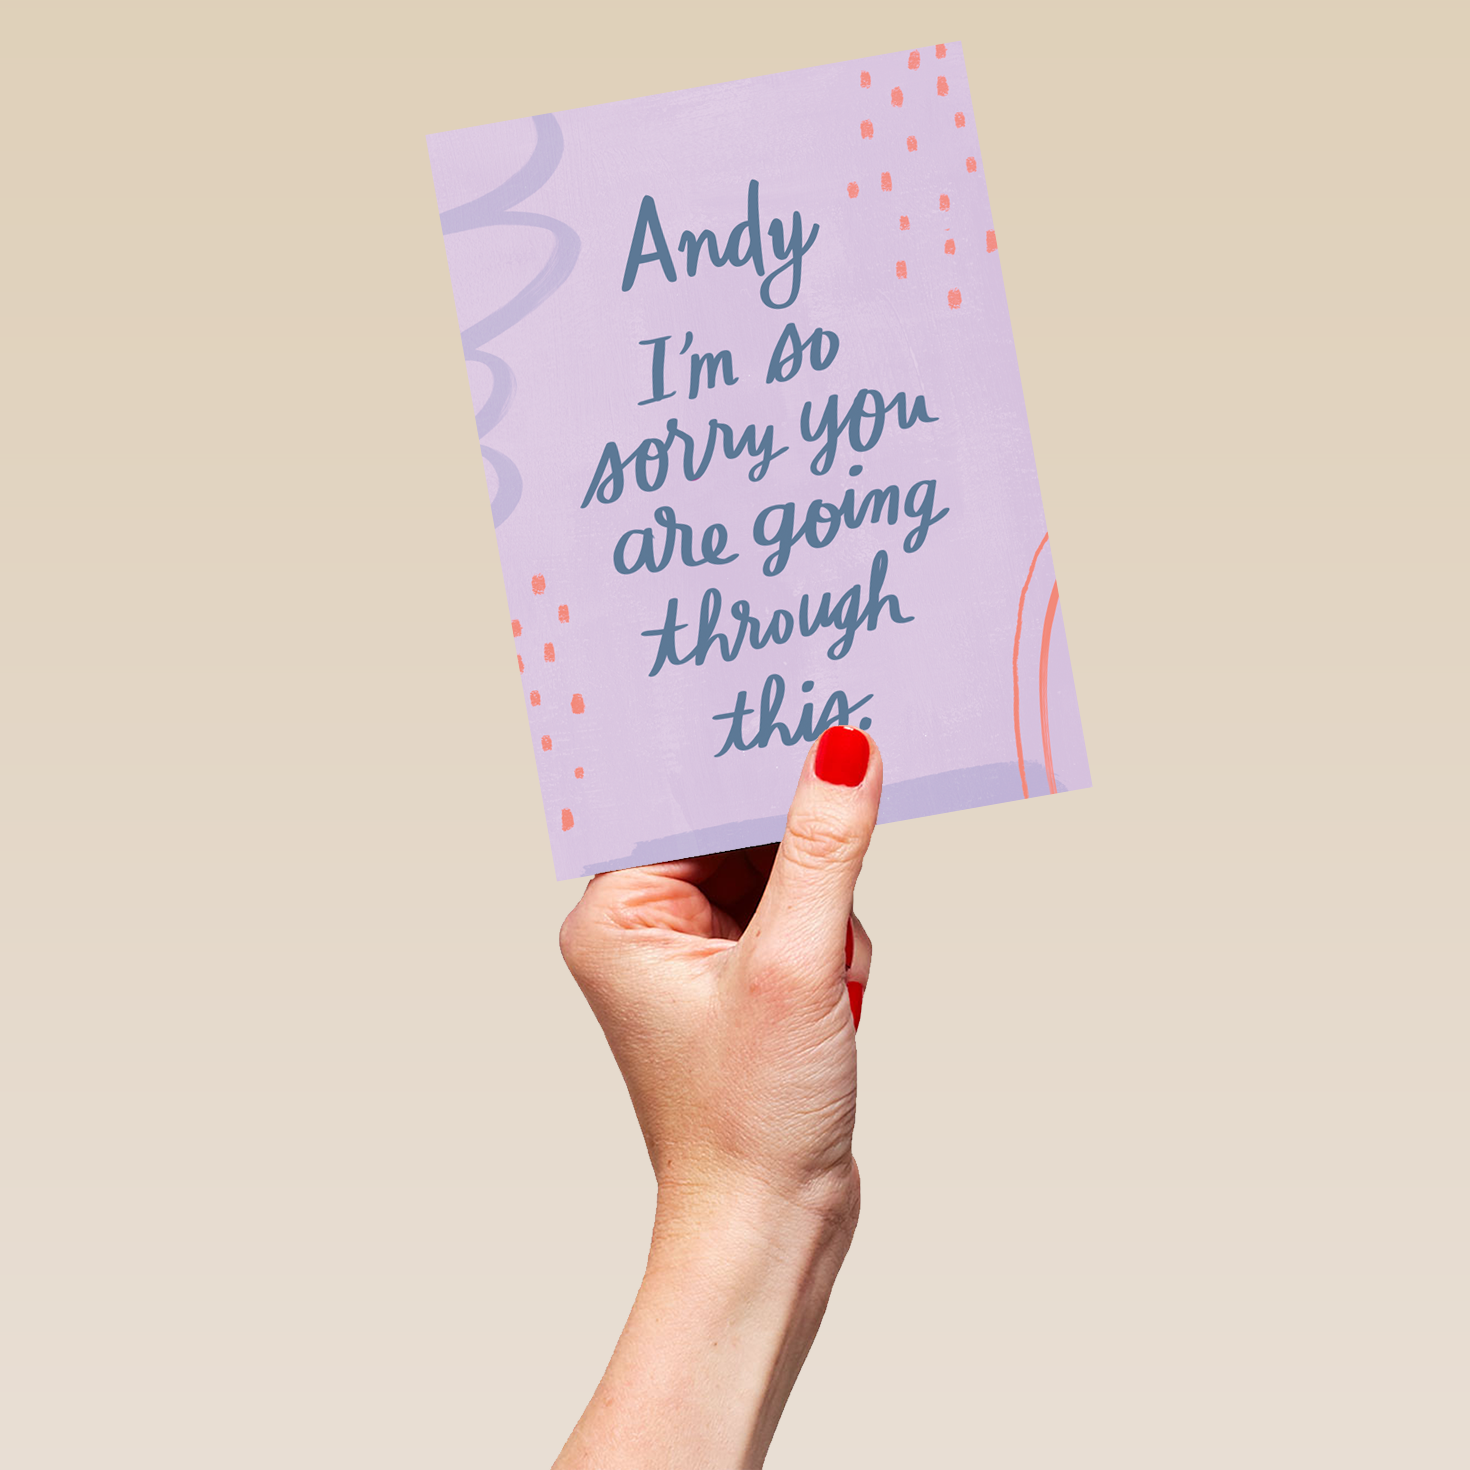 Andy
I'm so
sorry you
are going
through
this.